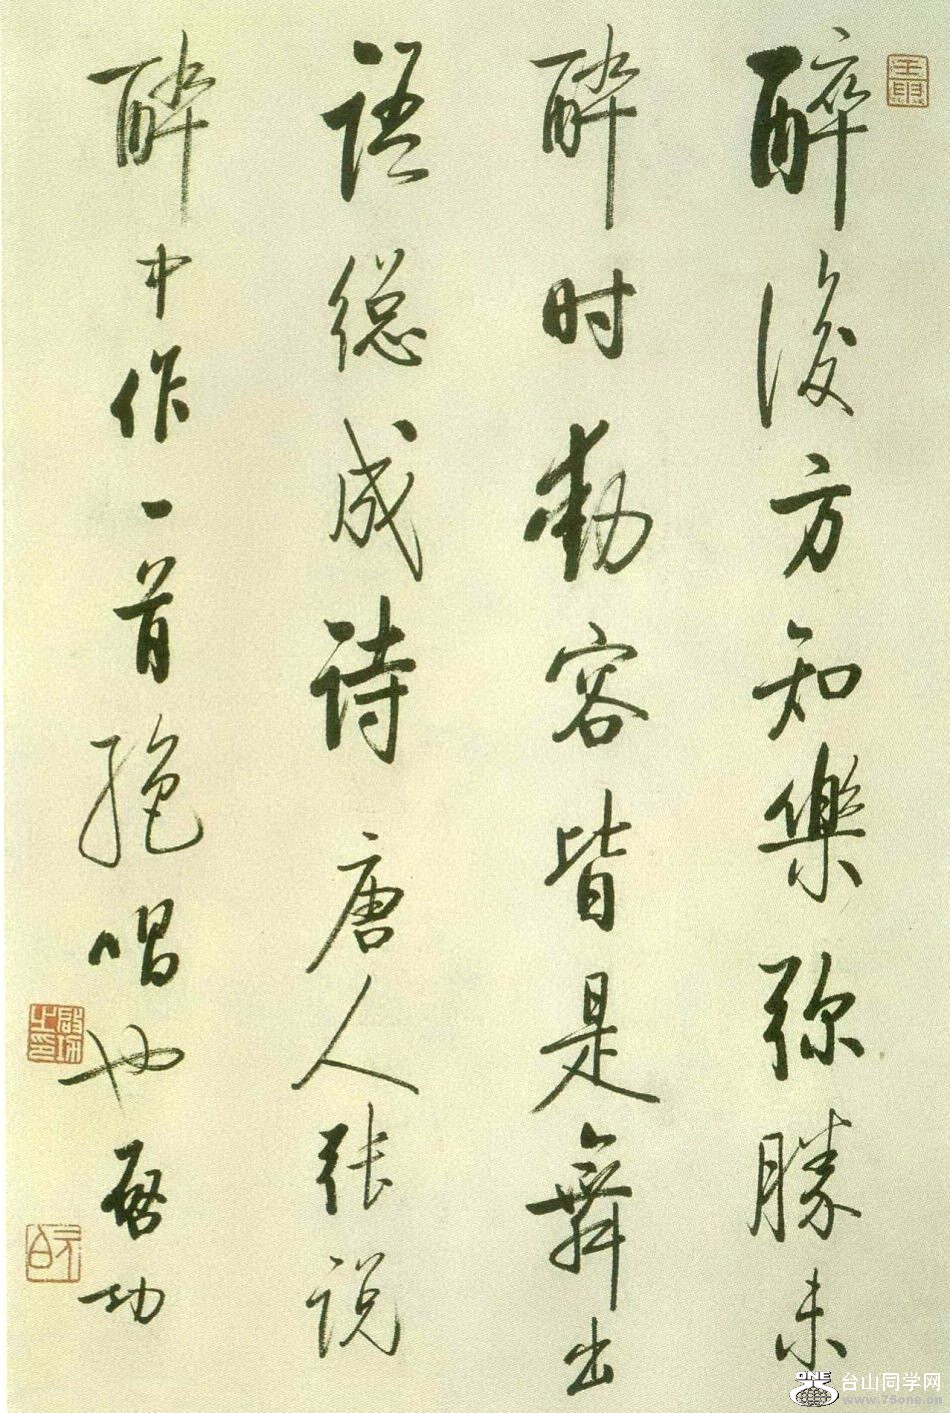 醉後方知樂弥勝未
醉时動容皆是舞出
语總成诗唐人张说
醉中作一首绝唱也启功
台山同学网
www.75one.cn
ONE